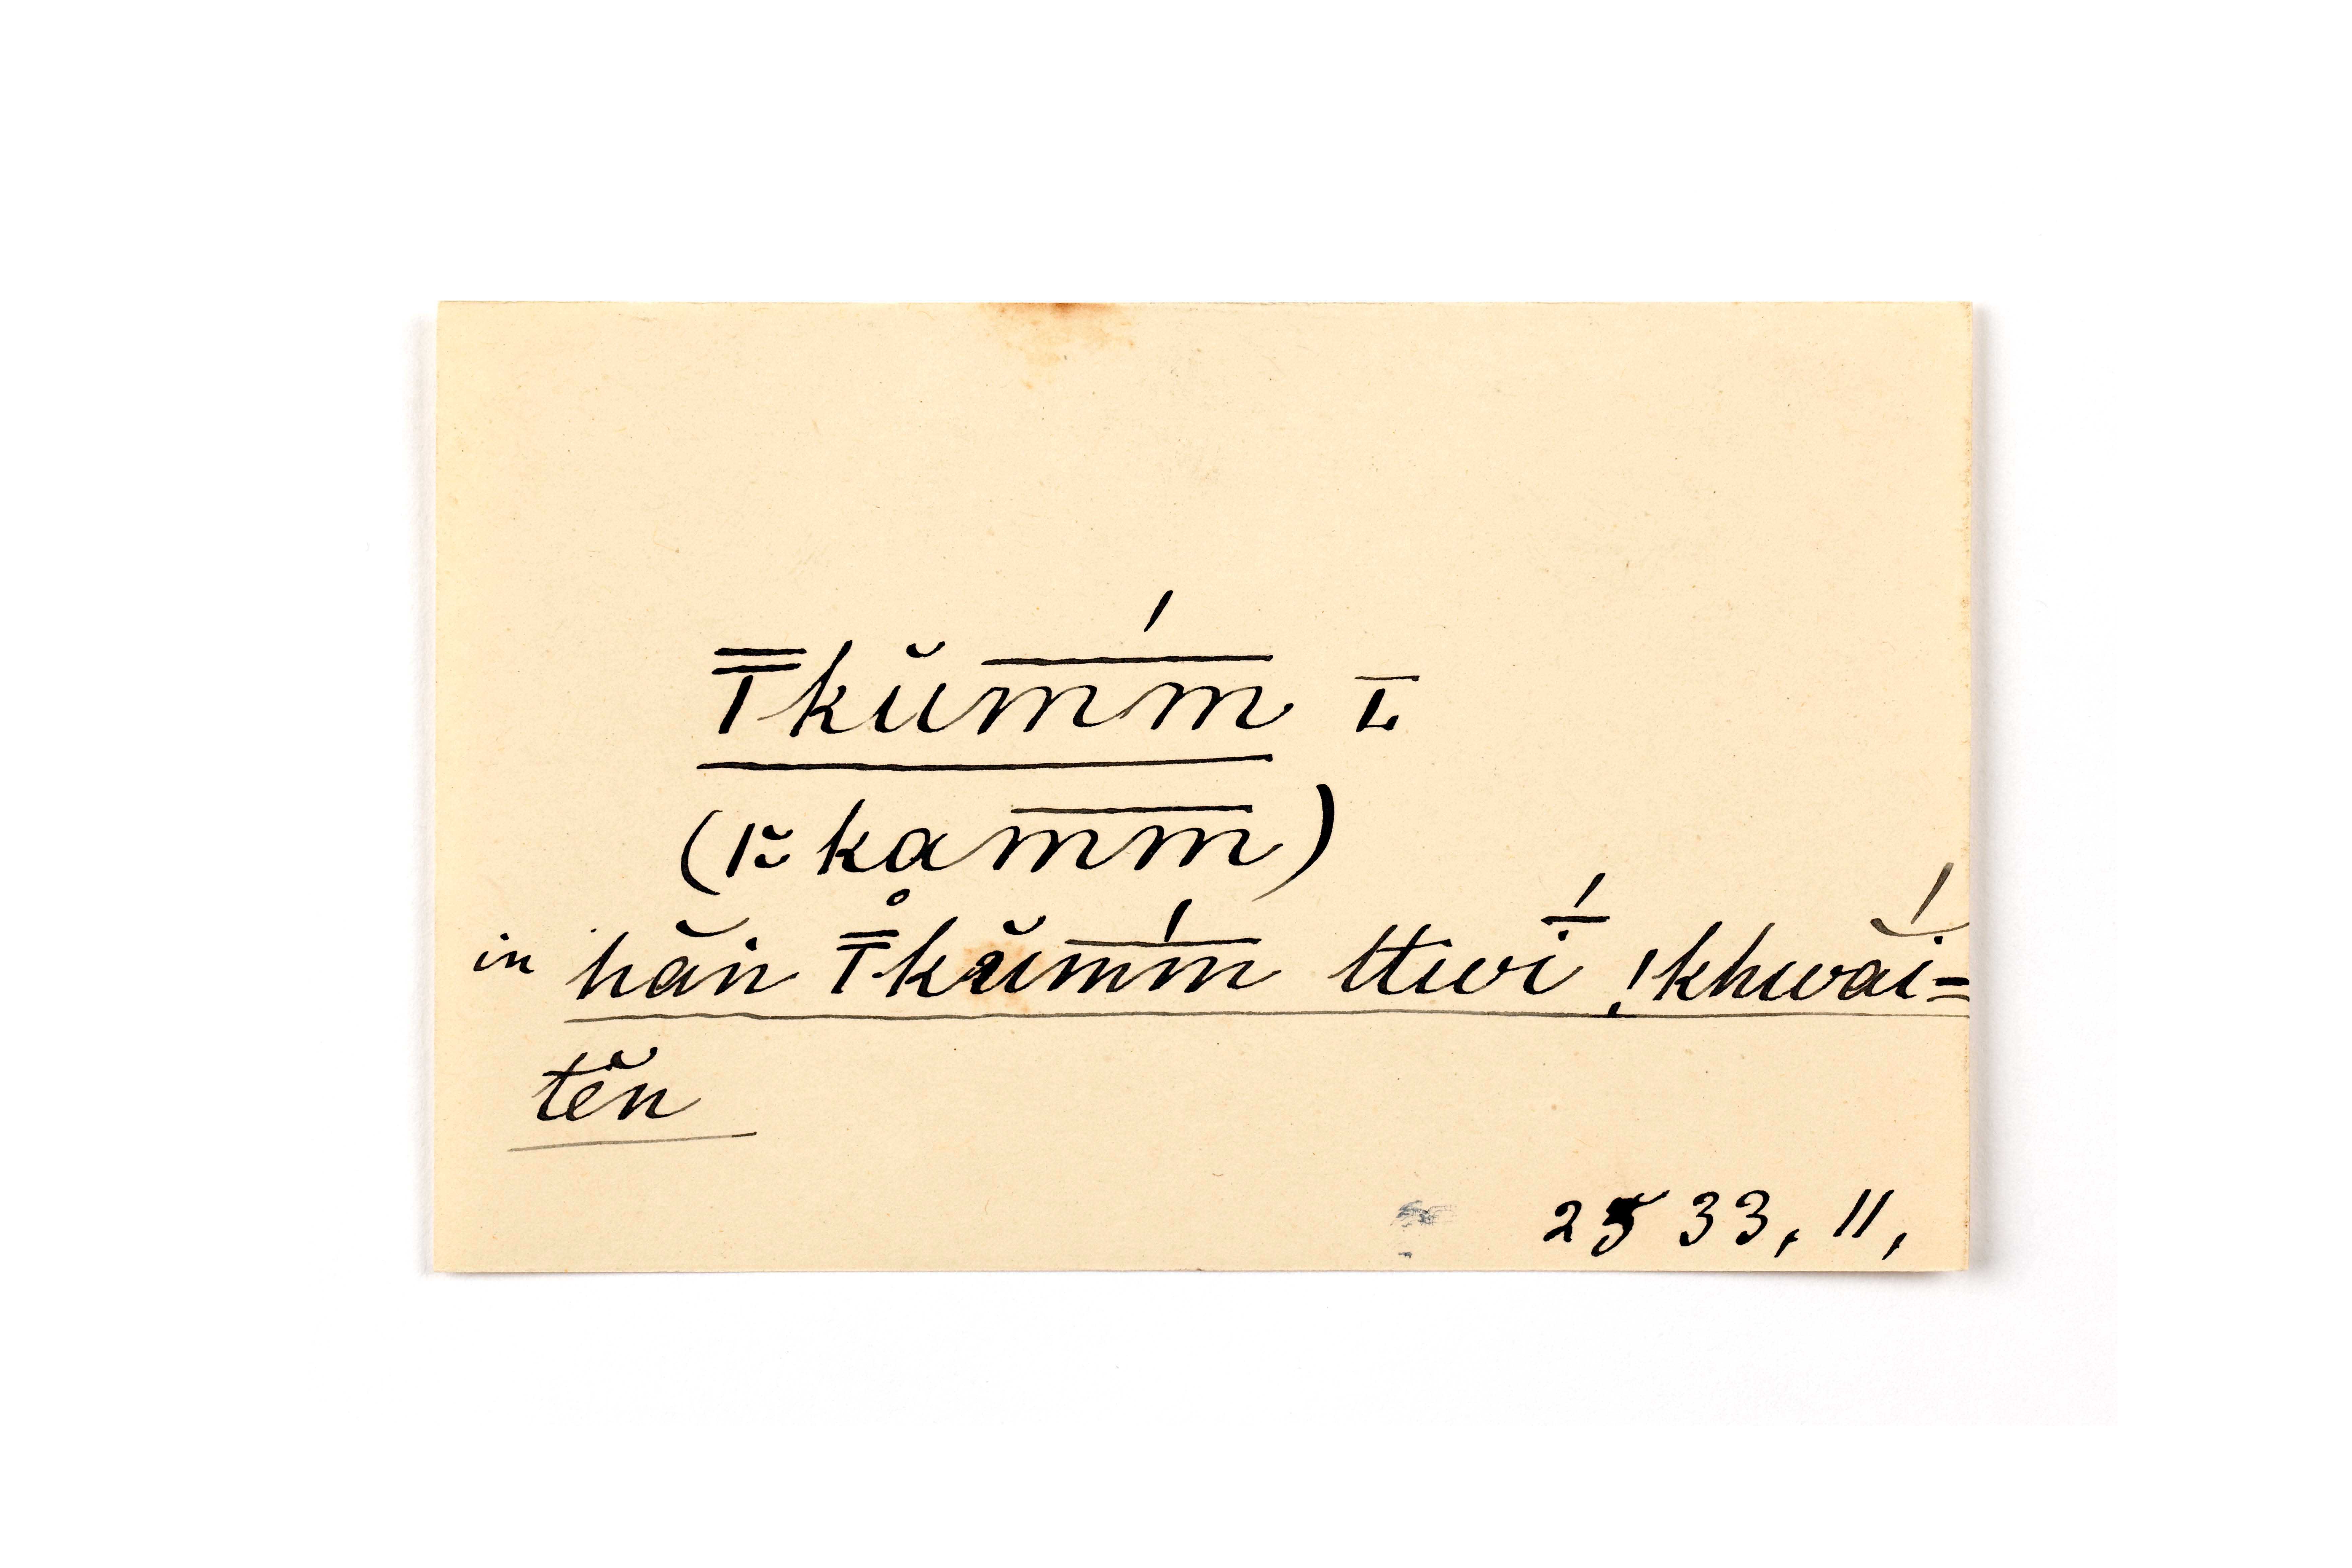 ꞮꞮkŭm̅ḿ̅ L
(ǀ꞉kam̅m̅)
in hăn̈ ǀkŭm̅ḿ̅ ttwí̄ !khwắi=
tĕn
2533, 11,